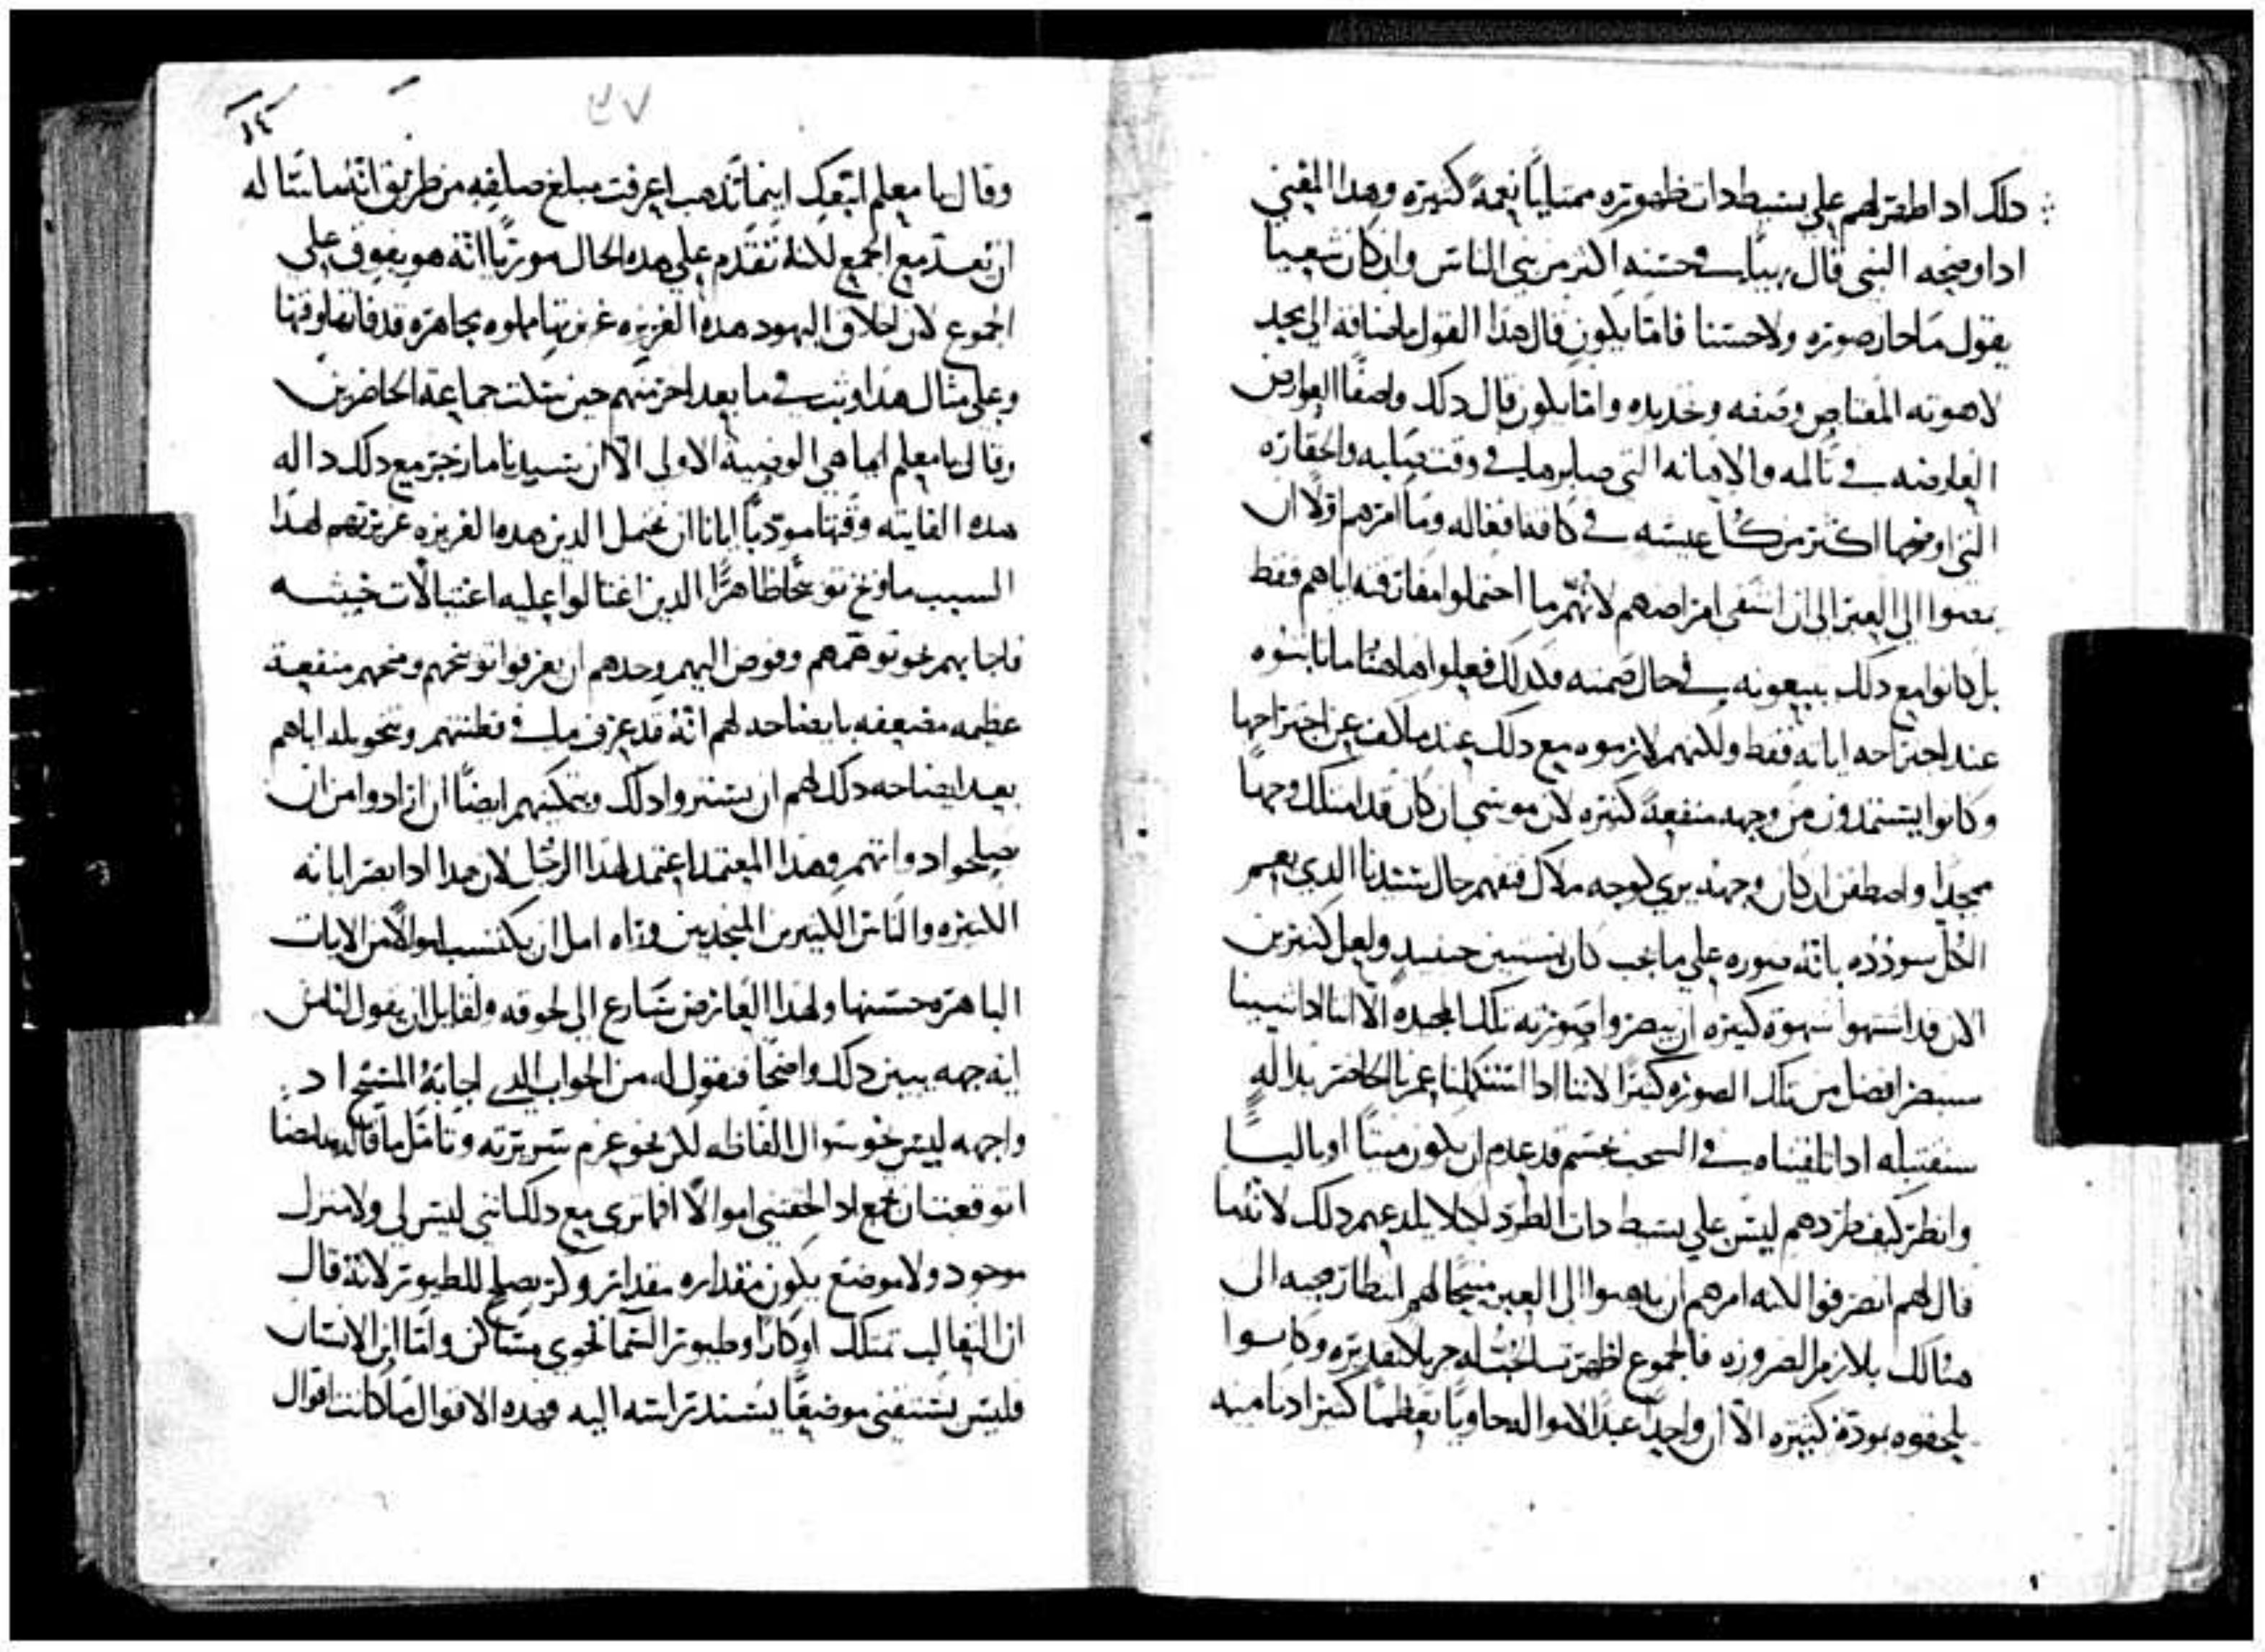 دلك اد اظهر لهم علي بسيط دات ظهوره ممتليًا نعمةً كثيره وهدا المعني
اد اوضحه النبي قال بهيًا في حسنه اكثر من بني الناس وان كان شعيا
يقول ما حاز صوره ولا حسنا فاما يكون قال هدا القول باضافه الي مجد
لاهوته المعتاص وصفه وتحديده واما يكون قال دلك واصفًا العوارض
العارضه في تالمه والاهانه التي صابرها في وقت صلبه والحقاره
التي اوضحها اكثر من كل عيشه في كافة افعاله وما امرهم اولا ان
يمضوا الي العبر الي ان اشفي امراضهم لانهم ما احتملوا مفارقته اياهم فقط
بل كانوا مع دلك يتبعونه في حال صمته وكدلك فعلوا هاهنا ما لابسوه
عند اجتراحه اياته فقط ولكنهم لازموه مع دلك عند ما كف عن اجتراحها
وكانوا يستمدون من وجهه منفعةً كثيره لان موسي ان كان قد امتلك وجها
ممجدًا واصطفن ان كان وجهه يري كوجه ملاك فتفهم حال سيدنا الدي يعم
الكل سودده بانه صوره علي ما يجب كان يستبين حينيدٍ ولعل كثيرين
الان قد اشتهوا شهوة كثيره ان يبصروا صورته تلك المجيده الا اننا ادا شيينا
سنبصر افضل من تلك الصوره كثيرًا لاننا ادا استكملنا عمرنا الحاضر بدالهٍ
سنقتبله ادا تلقيناه في السحب بجسم قد عدم ان يكون ميتًا او باليًا
وانظر كيف طردهم ليس علي بسيط دات الطرد ليلا يلدعهم دلك لانه ما
قال لهم انصرفوا لكنه امرهم ان يدهبوا الي العبر مبيحًا لهم انتظار مجيه الي
هنالك بلازم الضروره فالجموع اظهرت محبتها له جزيلا تقديره وكانوا
يلحفوه بمودة كثيره الا ان واحدًا عبدًا للاموال حاويًا تعظمًا كثيرًا دنا منه
١٤
٥٧
وقال يا معلم اتبعك اينما تدهب اعرفت مبلغ صلفه من طريق انه ما شا له
ان يعد مع الجمع لكنه تقدم علي هده الحال موريًا انه هو يفوق علي
الجموع لان اخلاق اليهود هده الغريزه غريزتها مملوه مجاهره قد فاتها وقتها
وعلي مثال هدا وثب في ما بعد اخر منهم حين سكت جماعة الحاضرين
وقال يا معلم ايما هي الوصية الاولي الا ان سيدنا ما زجر مع دلك داله
هده الفايته وقتها موديًا ايانا ان نحتمل الدين هده الغريزه غريزتهم لهدا
السبب ما وبخ توبيخا ظاهرًا الدين اغتالوا عليه اغتيالات خبيثه
فاجابهم نحو توهمهم وفوض اليهم وحدهم ان يعرفوا توبيخهم ومنحهم منفعة
عظيمه مضعفه بايضاحه لهم انه قد عرف ما في فطنتهم وتخويله اياهم
بعد ايضاحه دلك لهم ان يستروا دلك وتمكينهم ايضًا ان ارادوا من ان
يصلحوا دواتهم وهدا المعتمد اعتمد لهدا الرجل لان هدا اد ابصر اياته
الكثيره والناس الكثيرين المنجدبين وراه امل ان يكتسب اموالًا من الايات
الباهره حسنها ولهدا العارض سارع الي لحوقه ولقابل ان يقول لنا من
اية جهه يبين دلك واضحًا فنقول له من الجواب الدي اجابهُ المسيح اد
واجهه ليس نحو سوال الفاظه لكن نحو عزم سريرته وتامل ما قاله له ايضًا
اتوقعت ان تجمع اد الحقتني اموالًا افما تري مع دلك انني ليس لي ولا منزل
موجود ولا موضع يكون مقداره مقدار وكر يصلح للطيور لانه قال
ان الثعالب تمتلك اوكارًا وطيور السما تحوي مساكن واما ابن الانسان
فليس يستقني موضعًا يسند راسه اليه وهده الاقوال ما كانت اقوال